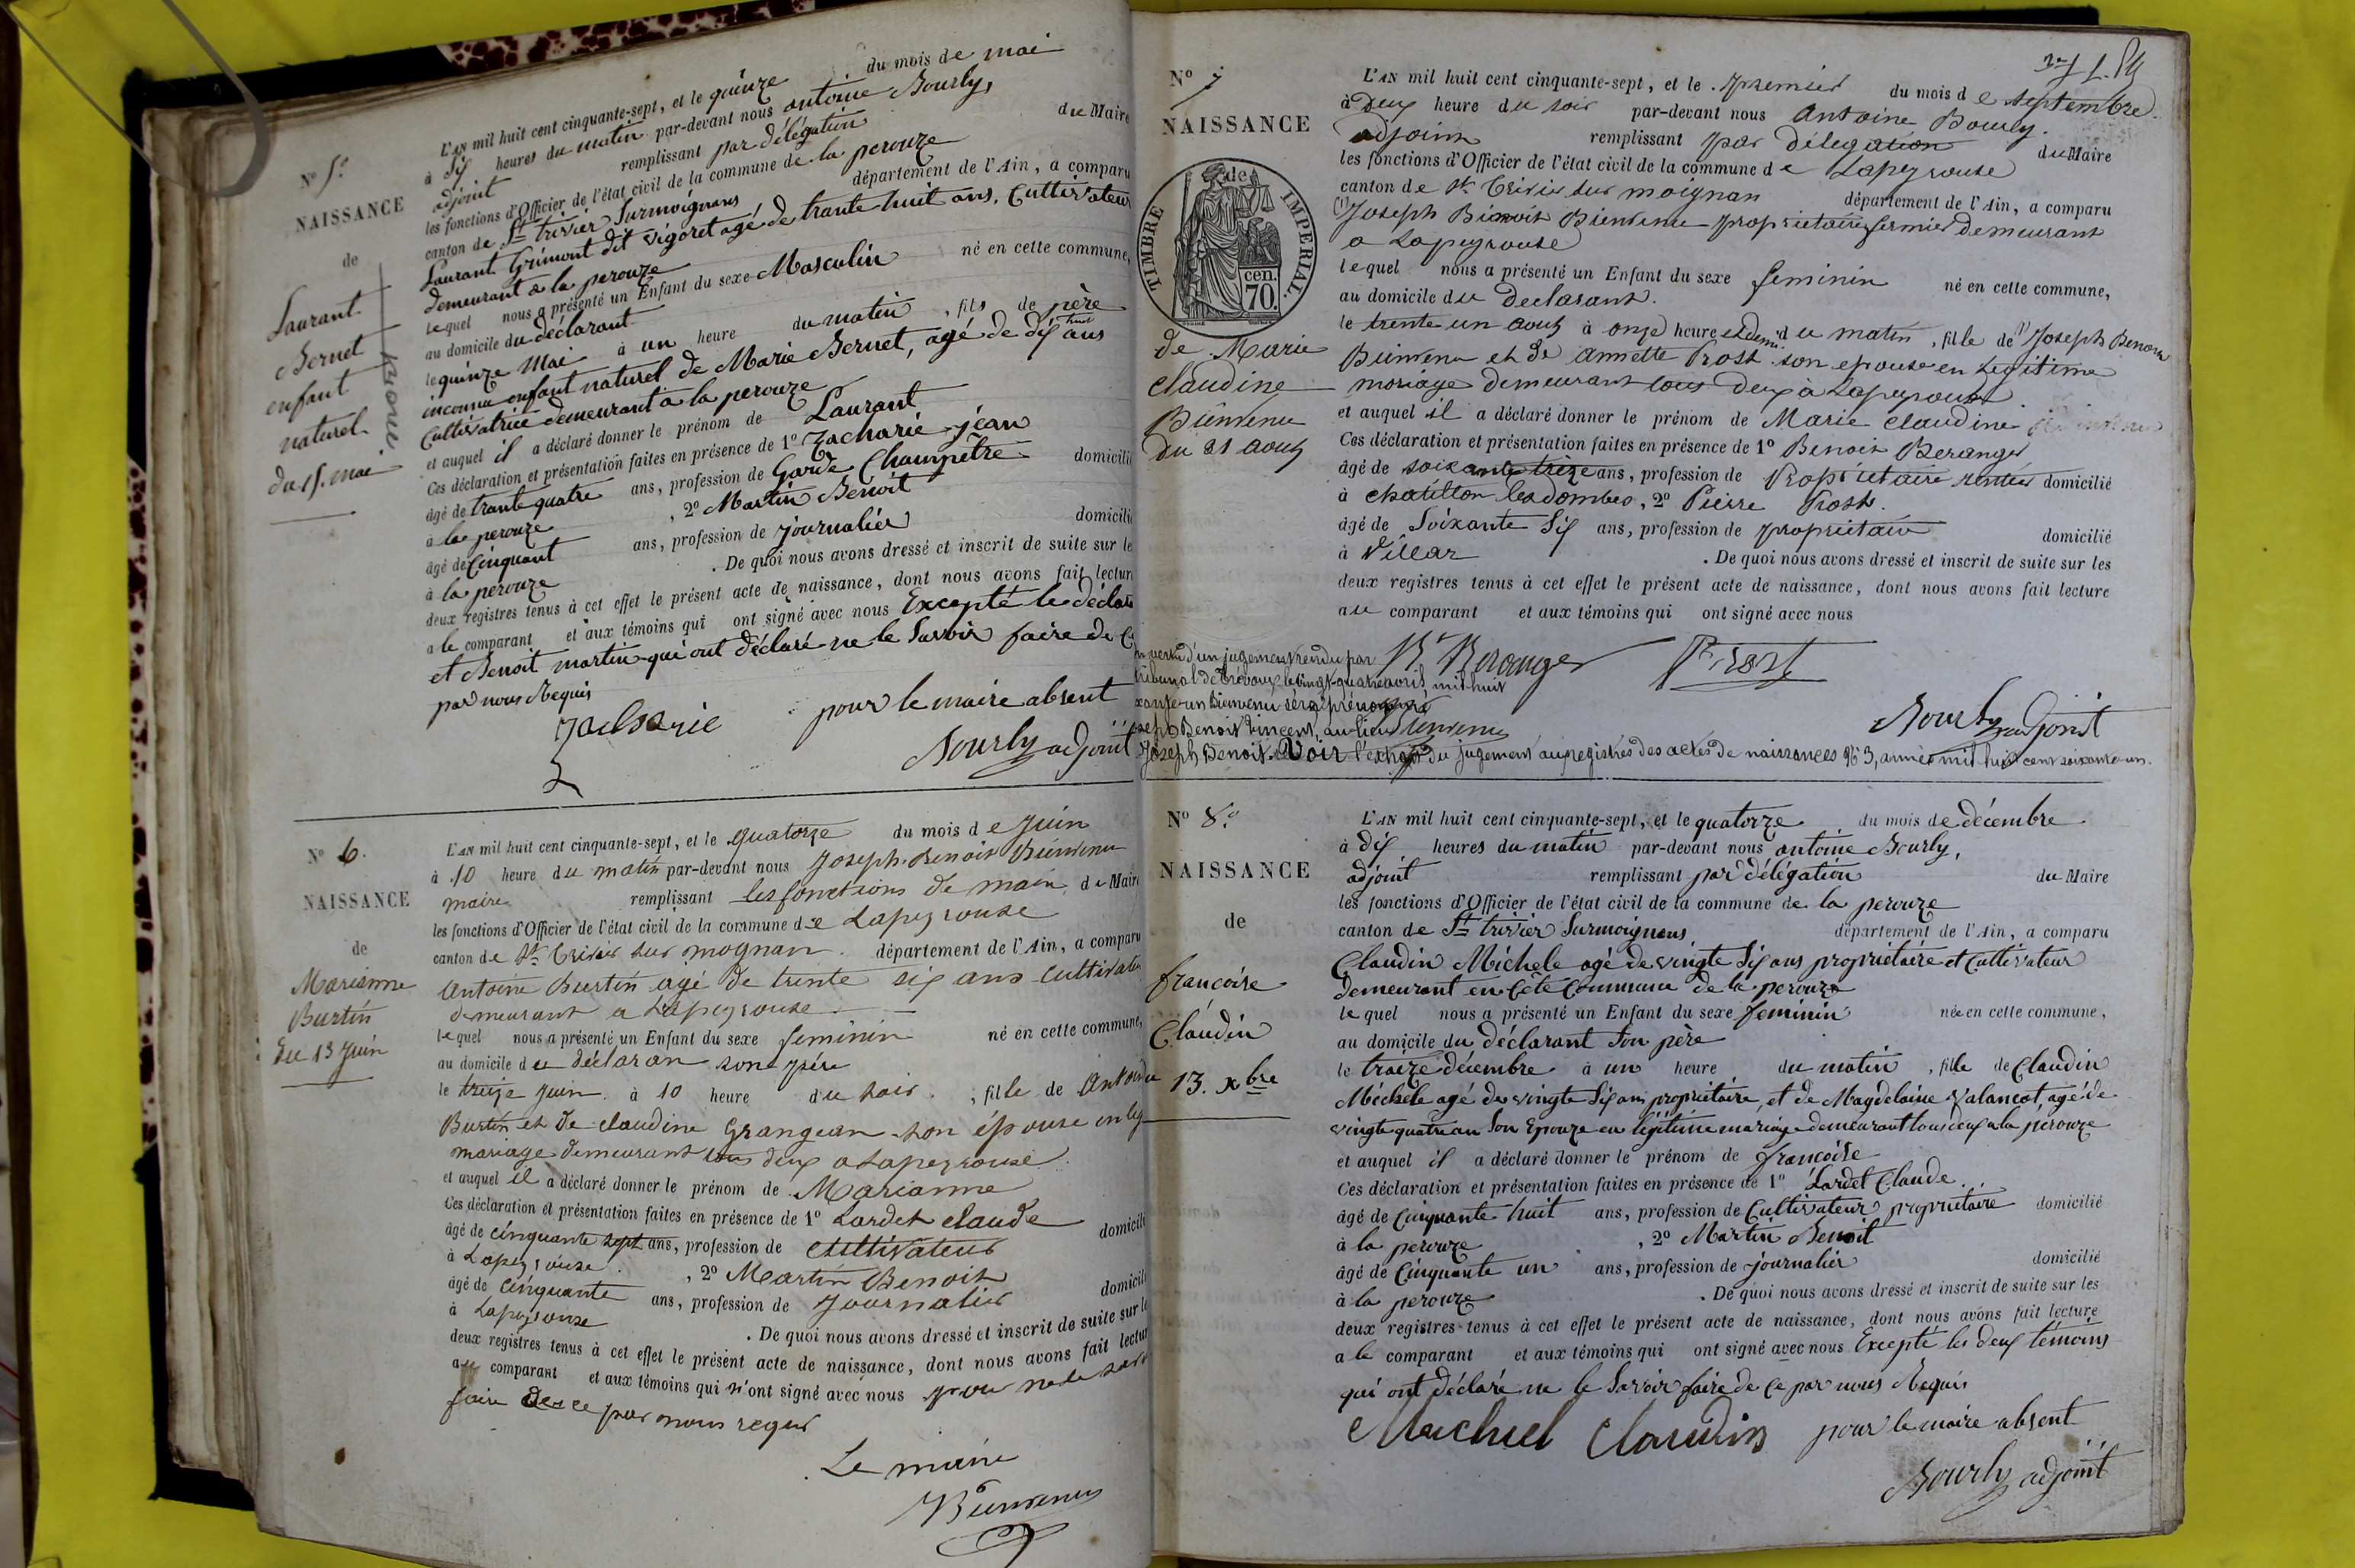 N° 5.
NAISSANCE
de
Laurant
Bernet
enfant
naturel
du 15. mai
L'AN mil huit cent cinquante-sept, et le quinze du mois de mai
à Six heures du matin par-devant nous antoine Bourly,
adjoint remplissant par délégation du Maire
les fonctions d'Officier de l'état civil de la commune de la perouze
canton de St trivier Surmoignans département de l'Ain, a comparu
Laurant Grimont dit vigoret agé de trante huit ans, Cultivateur
demeurant a la perouze
lequel nous a présenté un Enfant du sexe Masculin né en cette commune,
au domicile du déclarant
le quinze Mai à un heure du matin, fils de père
inconnu enfant naturel de Marie Bernet, agé de dix huit ans
Cultivatrice demeurant a la perouze
et auquel il a déclaré donner le prénom de Laurant
Ces déclaration et présentation faites en présence de 1° Zacharie jéan
âgé de trante quatre ans, profession de Garde Champêtre domicilié
à la perouze, 2° Martin Benoit
âgé de Cinquant ans, profession de journalier domicilié
à la perouze. De quoi nous avons dressé et inscrit de suite sur le
deux registres tenus à cet effet le présent acte de naissance, dont nous avons fait lectur
a le comparant et aux témoins qui ont signé avec nous Excepté le déclara
et Benoit martin qui ont déclaré ne le Savoir faire de Ce
par nous Requis
Zacharie pour le maire absent
Bourly adjoint
N° 6.
NAISSANCE
de
Marianne
Burtin
Du 13 Juin
L'AN mil huit cent cinquante-sept, et le quatorze du mois de Juin
à 10 heure du matin par-devant nous Joseph Benoit Bienvenu
maire remplissant les fonctions de maire du Maire
les fonctions d'Officier de l'état civil de la commune de Lapeyrouse
canton de St Trivier sur mognan. département de l'Ain, a comparu
Antoine Burtin agé de trente six ans cultivate
demeurant a Lapeyrouse
lequel nous a présenté un Enfant du sexe feminin né en cette commune,
au domicile du déclaran son père
le treize Juin à 10 heure du soir, fille de Antoine
Burtin et de claudine Grangean son épouse en leg
mariage demeurant tous deux a Lapeyrouse
et auquel il a déclaré donner le prénom de Marianne
Ces déclaration et présentation faites en présence de 1° Lardet claude
âgé de cinquante sept ans, profession de cultivateur domicilié
à Lapeyrouse, 2° Martin Benoit
âgé de cinquante ans, profession de Journalier domicilié
à Lapeyrouse. De quoi nous avons dressé et inscrit de suite sur le
deux registres tenus à cet effet le présent acte de naissance, dont nous avons fait lectur
au comparant et aux témoins qui n'ont signé avec nous pour ne le savoir
faire de ce par nous requis
Le maire
Bienvenu
N° 7
NAISSANCE
TIMBRE IMPERIAL.
70 cen.
de Marie
claudine
Bienvenu
du 31 aout
L'AN mil huit cent cinquante-sept, et le premier du mois de septembre
à deux heure du soir par-devant nous Antoine Bourly.
adjoint remplissant par délégation du Maire
les fonctions d'Officier de l'état civil de la commune de Lapeyrouse
canton de St Trivier sur moignan département de l'Ain, a comparu
(1) Joseph Benoit Bienvenu proprietaire fermier demeurant
a Lapeyrouse
lequel nous a présenté un Enfant du sexe feminin né en cette commune,
au domicile du declarant.
le trente un aout à onze heure et demi du matin, fille de (1) Joseph Benoit
Bienvenu et de annette Prost son epouse en legitime
mariage demeurant tous deux à Lapeyrouse
et auquel il a déclaré donner le prénom de Marie claudine
Ces déclaration et présentation faites en présence de 1° Benoit Beranger
âgé de soixante treize ans, profession de Propriétaire rentier domicilié
à chatillon les dombes, 2° Pierre Prost.
âgé de Soixante Six ans, profession de propriétaire domicilié
à Villar. De quoi nous avons dressé et inscrit de suite sur les
deux registres tenus à cet effet le présent acte de naissance, dont nous avons fait lecture
au comparant et aux témoins qui ont signé avec nous
Bt Beranger Prost
Bienvenu
Bourly adjoint
en vertu d'un jugement rendu par
tribunal de Trévoux le vingt-quatre avril, mil huit
xante-un Bienvenu sera prénommé
oseph Benoit Vincent, au lieu
Joseph Benoit. Voir l'extrait du jugement au registres des actes de naissances N° 3, année mil huit cent soixante-un.
N° 8.
NAISSANCE
de
francoise
Claudin
13. Xbre
L'AN mil huit cent cinquante-sept, et le quatorze du mois de décembre
à dix heures du matin par-devant nous antoine Bourly,
adjoint remplissant par délégation du Maire
les fonctions d'Officier de l'état civil de la commune de la perouze
canton de St trivier Surmoignans département de l'Ain, a comparu
Claudin Michele agé de vingte Six ans propriétaire et Cultivateur
demeurant en Cete Commune de la perouze
lequel nous a présenté un Enfant du sexe feminin née en cette commune,
au domicile du déclarant Son père
le traize décembre à un heure du matin, fille de Claudin
Michele agé de vingte Six ans propriétaire, et de Magdelaine Valancot, agé de
vingte quatre an Son Epouze en légitime mariage demeurant tous deux a la pérouze
et auquel il a déclaré donner le prénom de francoise
Ces déclaration et présentation faites en présence de 1° Lardet Claude
âgé de Cinquante huit ans, profession de Cultivateur propriétaire domicilié
à la perouze, 2° Martin Benoit
âgé de Cinquante un ans, profession de journalier domicilié
à la perouze. De quoi nous avons dressé et inscrit de suite sur les
deux registres tenus à cet effet le présent acte de naissance, dont nous avons fait lecture
a le comparant et aux témoins qui ont signé avec nous Excepté les deux témoins
qui ont déclaré ne le Savoir faire de Ce par nous Requis
Michel Claudin pour le maire absent
Bourly adjoint